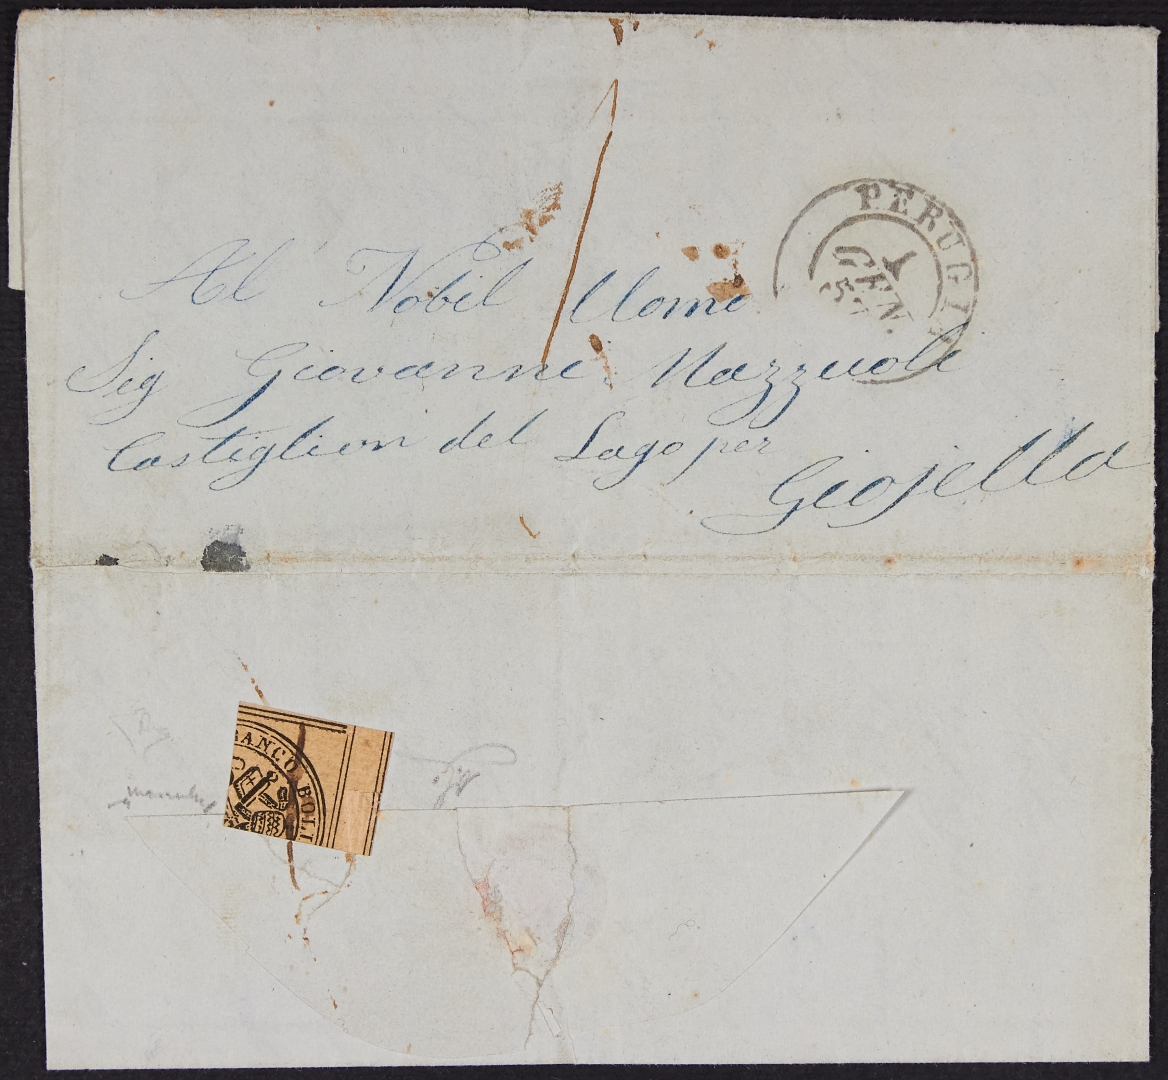 1
PERUGIA
1
GEN.
Al Nobil Uomo
Sig Giovanni Mazzuoli
Castiglion del Lago per
Giojella
RANCO BOLL